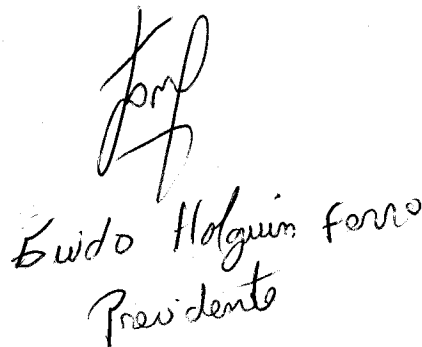 Guido Holguin Ferro
Presidente